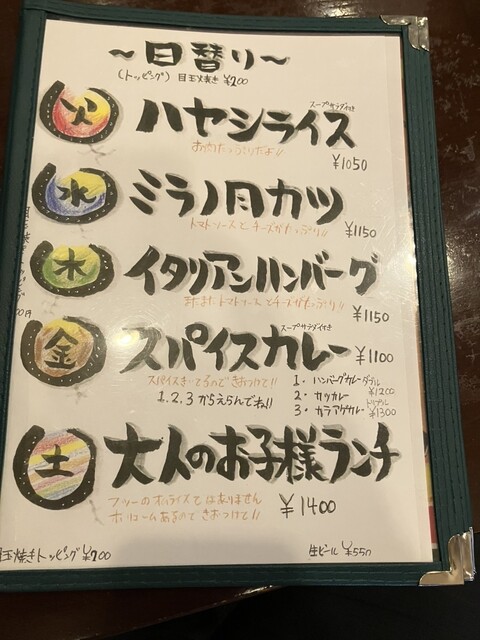 ～日替り～
(トッピング) 目玉焼き ¥200
火
ハヤシライス
スープサラダ付き
お肉たっぷりだよ!!
¥1050
水
ミラノ風カツ
トマトソースとチーズがたっぷり!!
¥1150
木
イタリアンハンバーグ
またまたトマトソースとチーズがたっぷり!!
¥1150
金
スパイスカレー
スープサラダ付き
¥1100
スパイスきいてるので きをつけて!!
1.2.3からえらんでね!!
1. ハンバーグカレー ダブル ¥1200
2. カツカレー トリプル
3. カラアゲカレー ¥1300
土
大人のお子様ランチ
フツーのオムライスではありません
ボリュームあるので きをつけて!!
¥1400
目玉焼きトッピング ¥200
生ビール ¥550